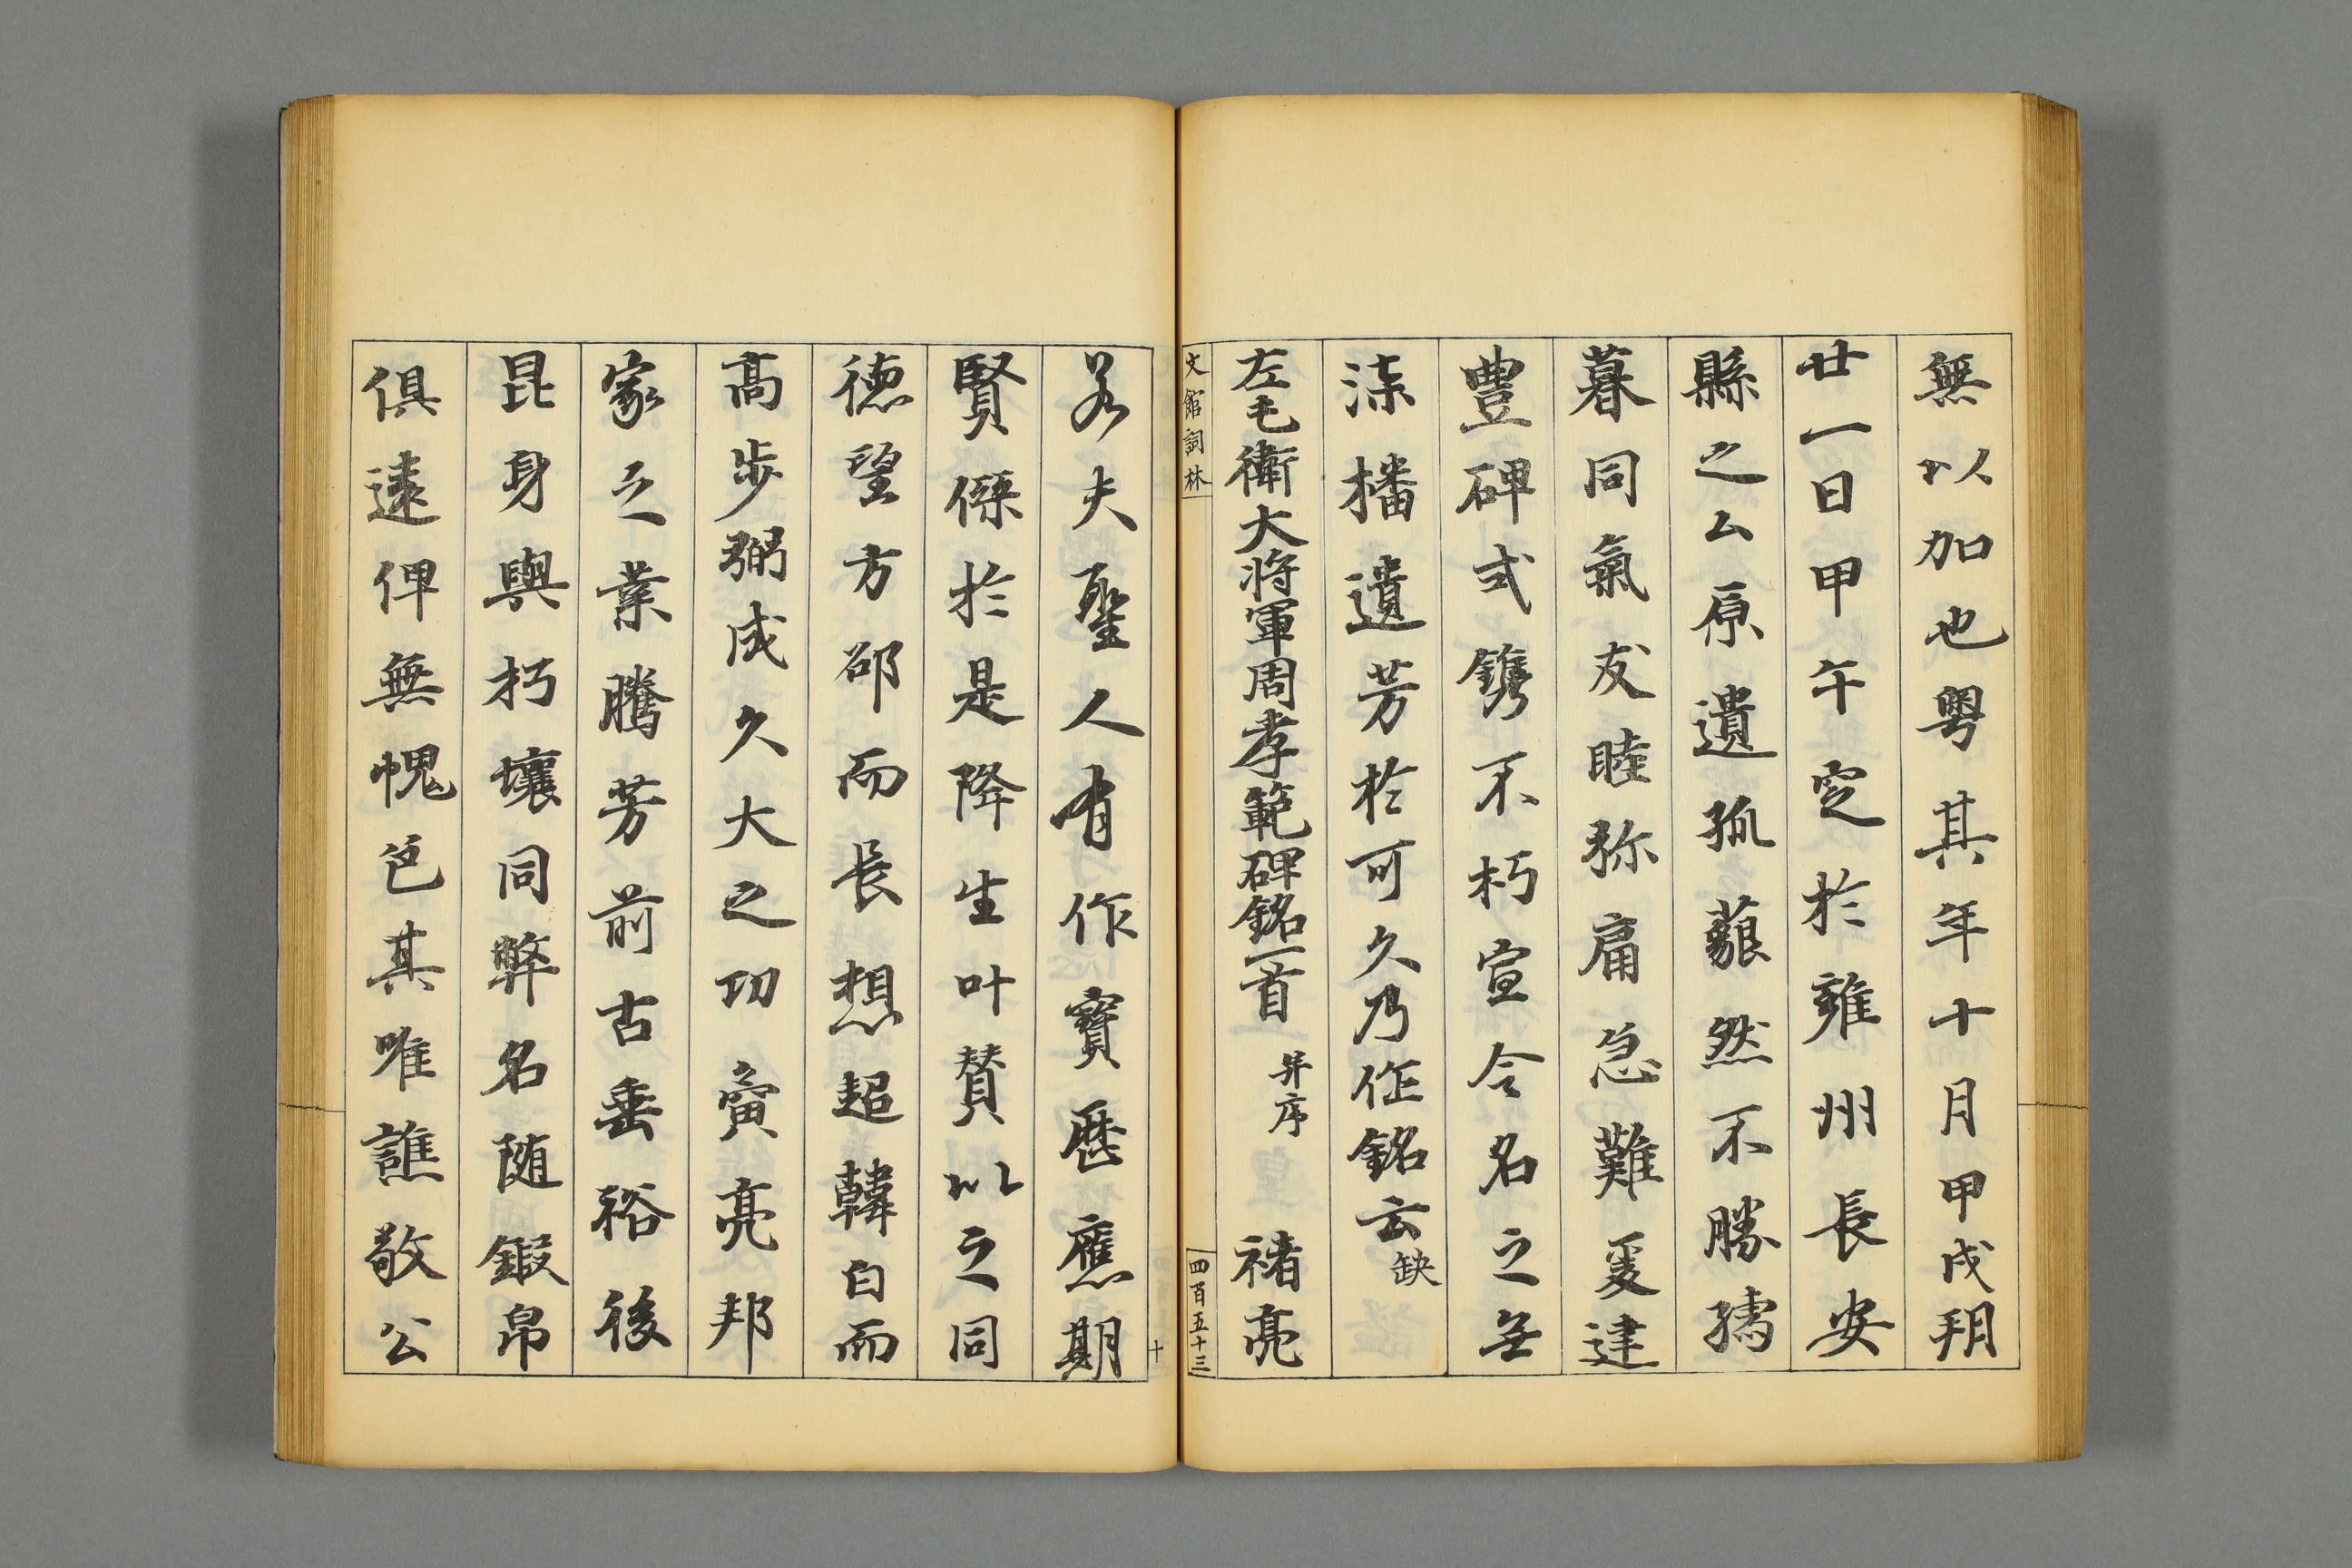 無以加也粤其年十月甲戌朔
廿一日甲午窆於雍州長安
縣之厶原遺孤藐然不勝孺
暮同氣友睦弥肩急難爰建
豊碑式鐫不朽宣令名之無
渿播遺芳於可久乃作銘云缺
左屯衛大将軍周孝範碑銘一首 并序 褚亮
文館詞林
四百五十三
十
若夫聖人有作寳歴應期
賢傑於是降生叶賛以之同
徳望方邵而長想超韓白而
髙步弼成久大之功寅亮邦
家之業騰芳前古垂裕後
昆身與朽壤同弊名随鍜帛
俱遠俾無愧色其唯譙敬公